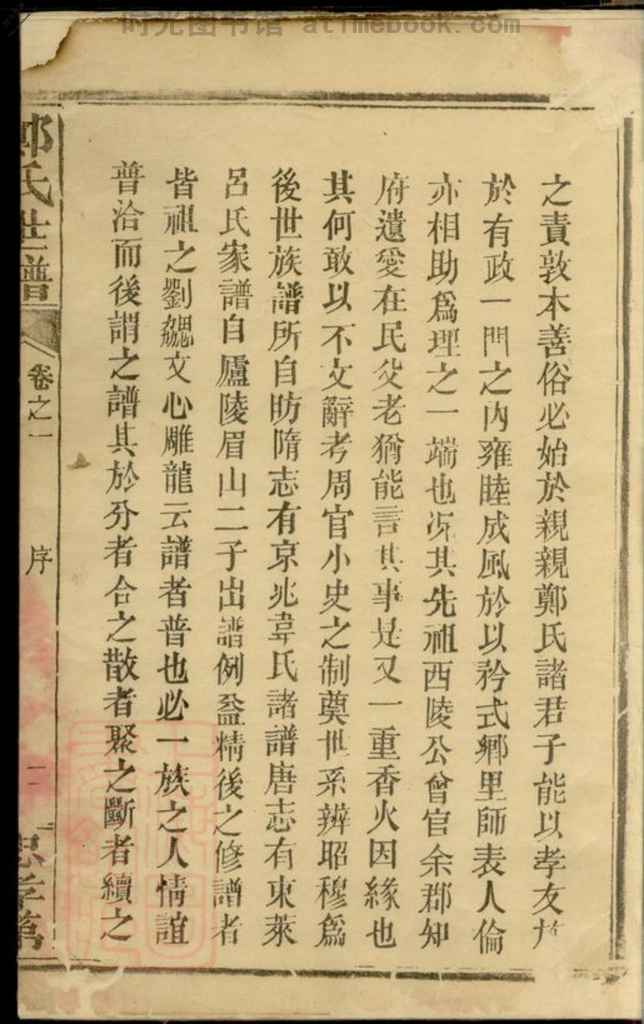 时光图书馆 atimebook.com
之責敦本善俗必始於親親鄭氏諸君子能以孝友於
於有政一門之內雍睦成風於以矜式鄉里師表人倫
亦相助爲理之一端也况其先祖西陵公曾官余郡知
府遺愛在民父老猶能言其事是又一重香火因緣也
其何敢以不文辭考周官小史之制奠世系辨昭穆爲
後世族譜所自昉隋志有京兆韋氏諸譜唐志有東萊
呂氏家譜自廬陵眉山二子出譜例益精後之修譜者
皆祖之劉勰文心雕龍云譜者普也必一族之人情誼
普洽而後謂之譜其於分者合之散者聚之斷者續之
鄭氏世譜 卷之一 序